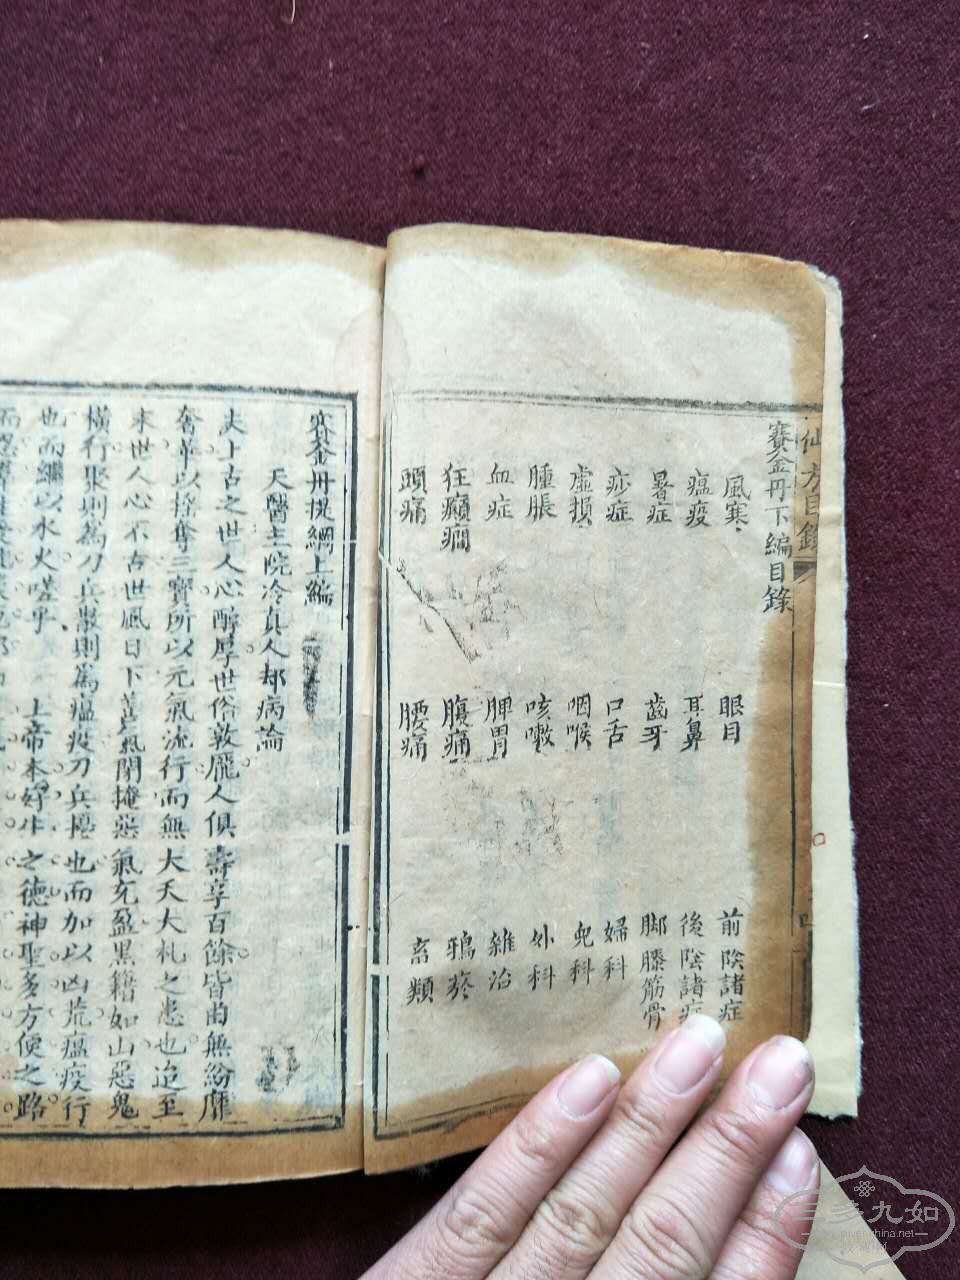 仙方目錄
賽金丹下編目錄
風寒 眼目 前陰諸症
瘟疫 耳鼻 後陰諸症
暑症 齒牙 脚膝筋骨
痧症 口舌 婦科
虛損 咽喉 兒科
腫脹 咳嗽 外科
血症 脾胃 雜治
狂癲癇 腹痛 鴉菸
頭痛 腰痛 畜類
賽金丹提綱上編
天醫主院冷真人却病論
夫上古之世人心醇厚世俗敦龐人俱壽享百餘皆由無紛靡
奪華以搖奪三寶所以元氣流行而無大夭大札之患也迨至
末世人心不古世風日下善氣閉掩惡氣充盈黑籍如山惡鬼
橫行聚則為刀兵散則為瘟疫刀兵擾也而加以凶荒瘟疫行
也而繼以水火嗟乎 上帝本好生之德神聖多方便之路
三多九如